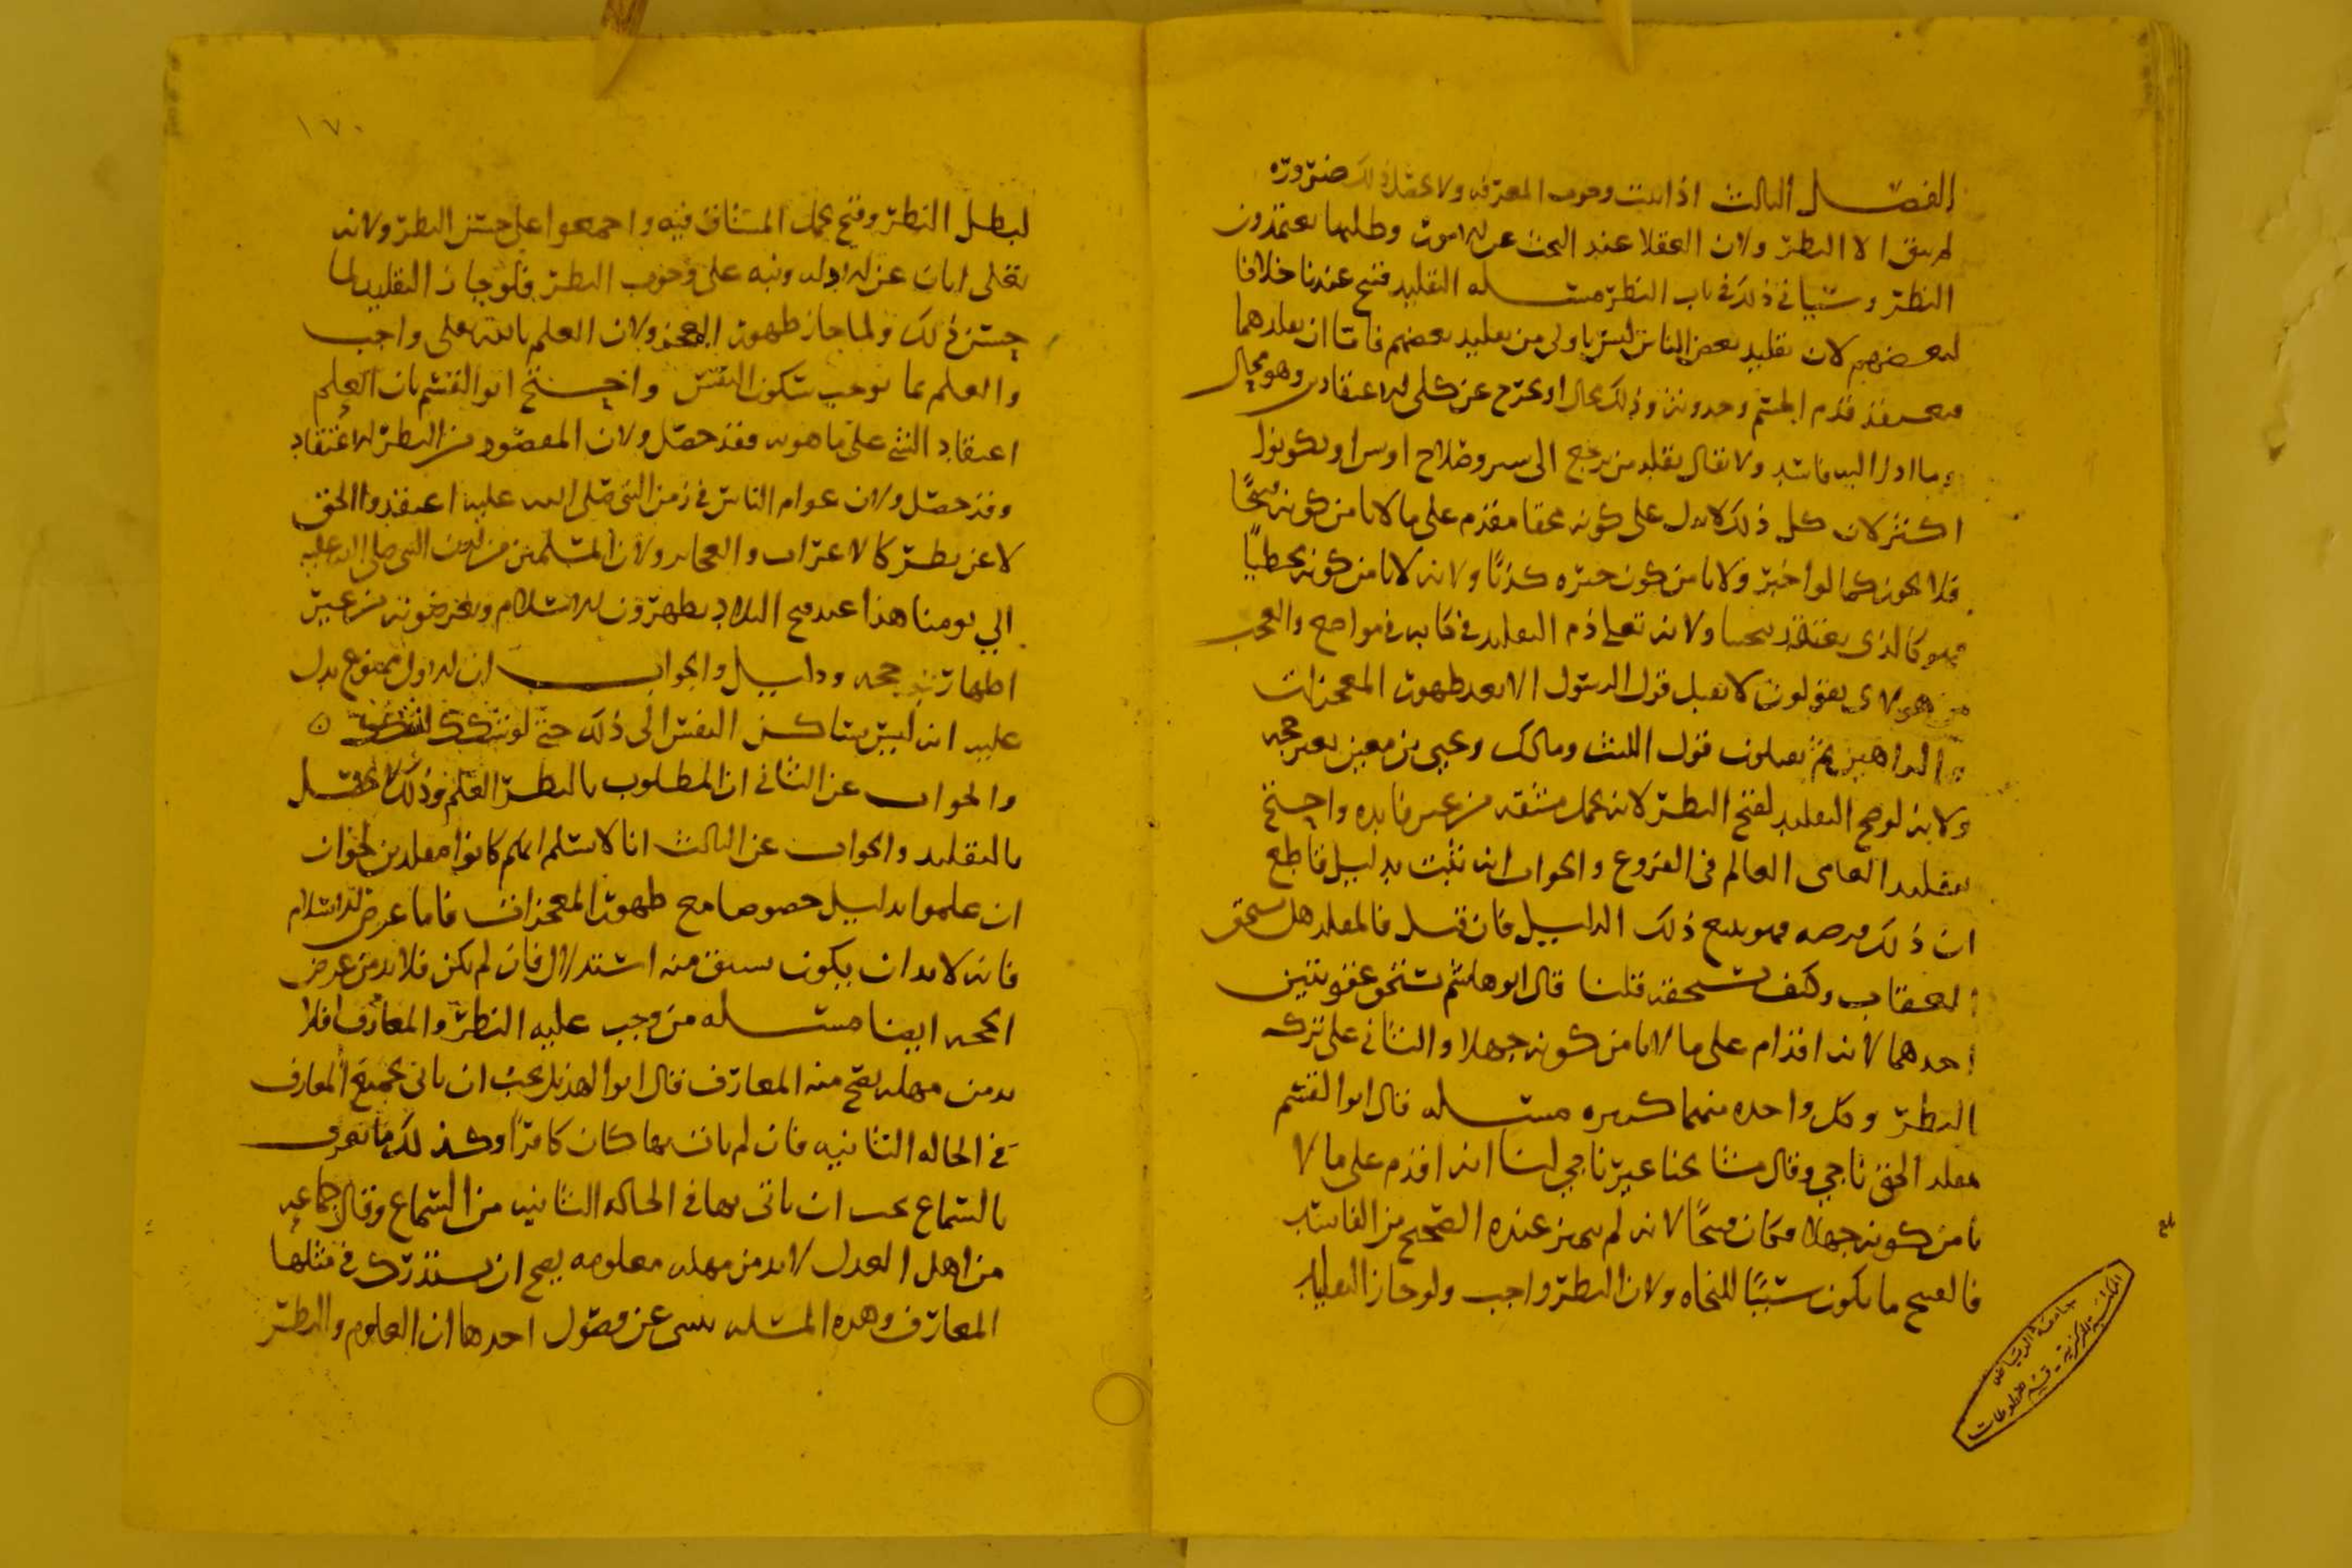 الفصل الثالث اذا ثبت وجوب المعرفه ولا يحصل ذلك ضروره
لم يبق الا النظر ولان العقلا عند البحث عن الامور وطلبها يعتمدون
النظر وسياتي ذلك في باب النظر مسله التقليد قبيح عندنا خلافا
لبعضهم لان تقليد بعض الناس ليس باولى من تقليد بعضهم فاما ان يقلدهما
فيعتقد قدم الجسم وحدوثه وذلك محال او يخرج عن كلى الاعتقادين وهو محال
وما ادى اليه فاسد ولا يقال يقلد من يرجع الى ستر وصلاح او يكونوا
اكثر لان كل ذلك لا يدل على كونه محقا مقدم على ما لا يامن كونه قبيحًا
فلا يجوز كما لو اخبر ولا يامن كون خبره كذبًا ولانه لا يامن كونه مخطيًا
فهو كالذي يعتقد ولانه تعلى ذم التقليد في كتابه في مواضع والعجب
من هولاى يقولون لا نقبل قول الرسول الا بعد ظهور المعجزات
والبراهين ثم يقبلون قول الليث ومالك ويحيى بن معين بغير حجه
ولانه لو صح التقليد لقبح النظر لانه تحمل مشقه من غير فايده واحتج
بتقليد العامى العالم في الفروع والجواب انه ثبت بدليل قاطع
ان ذلك فرضه فهو يتبع ذلك الدليل فان قيل فالمقلد هل يستحق
العقاب وكيف يستحقه قلنا قال ابو هاشم يستحق عقوبتين
احدهما لانه اقدام على ما لا يامن كونه جهلا والثاني على تركه
النظر وكل واحده منهما كبيره مسله قال ابو القسم
مقلد الحق ناجي وقال مشايخنا غير ناجي لنا انه اقدم على ما لا
يامن كونه جهلا فكان قبيحًا لانه لم يميز عنده الصحيح من الفاسد
فالقبيح ما يكون سببًا للنجاه ولان النظر واجب ولو جاز التقليد
بلغ
جامعة الرياض
المكتبة المركزية - قسم المخطوطات
١٧٠
لبطل النظر وقبح تحمل المشاق فيه واجمعوا على حسن النظر ولانه
تعلى ابان عن الادله ونبه على وجوب النظر فلو جاز التقليد لما
حسن ذلك ولما جاز ظهور المعجز ولان العلم بالله تعلى واجب
والعلم بما يوجب سكون النفس واحتج ابو القسم بان العلم
اعتقاد الشي على ما هو به فقد حصل ولان المقصود من النظر الاعتقاد
وقد حصل ولان عوام الناس في زمن النبي صلى الله عليه اعتقدوا الحق
لا عن نظر كالاعراب والعجايز ولان المسلمين من لدن النبي صلى الله عليه
الي يومنا هذا عند فتح البلاد يظهرون الاسلام ويعرضونه من غير
اظهار حجه ودليل والجواب ان الاول ممنوع يدل
عليه انه ليس بساكن النفس الى ذلك حتى لو شكك
والجواب عن الثاني ان المطلوب بالنظر العلم وذلك لا يحصل
بالتقليد والجواب عن الثالث انا لا نسلم انهم كانوا مقلدين لجواز
ان علموا بدليل خصوصا مع ظهور المعجزات فاما عرض الاسلام
فانه لا بد ان يكون سبق منه استدلال فان لم يكن فلا بد من عرض
الحجه ايضا مسله من وجب عليه النظر والمعارف فلا
بد من مهله يصح منه المعارف قال ابو الهذيل يجب ان ياتي بجميع المعارف
في الحاله الثانيه فان لم يات بها كان كافرًا وكذلك ما يعرف
بالسماع يجب ان ياتى بها في الحاله الثانيه من السماع وقال جماعه
من اهل العدل لا بد من مهله معلومه يصح ان يستدرك في مثلها
المعارف وهذه المسله تبنى عن فصول احدها ان العلوم والنظر